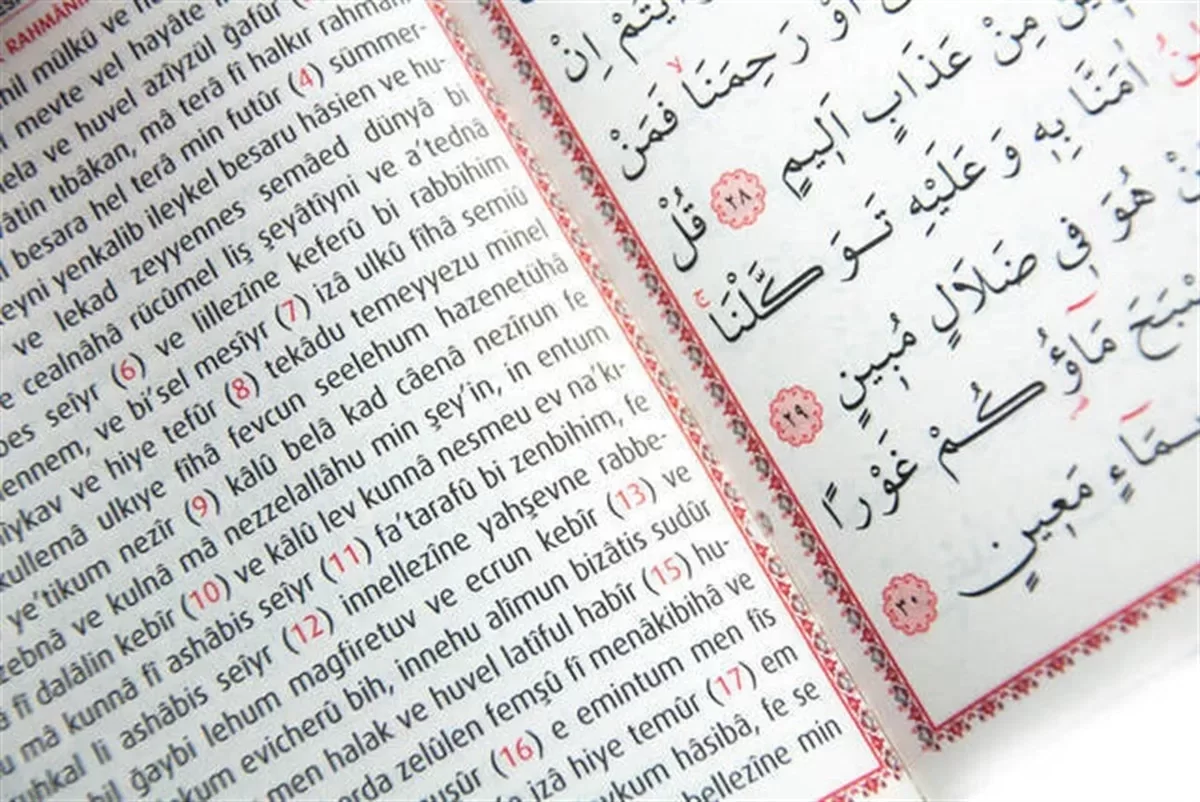 mülkü ve
mevte vel hayâte
ve huvel azîyzül ğafûr
tıbâkan, mâ terâ fî halkır
besara hel terâ min futûr (4) sümmer-
yenkalib ileykel besaru hâsien ve hu-
ve lekad zeyyennes semâed dünyâ bi
cealnâhâ rücûmel liş şeyâtîyni ve a'tednâ
seîyr (6) ve lillezîne keferû bi rabbihim
ve bi'sel mesîyr (7) izâ ulkû fîhâ semiû
ve hiye tefûr (8) tekâdu temeyyezu minel
kullemâ ulkıye fîhâ fevcun seelehum hazenetühâ
ye'tikum nezîr (9) kâlû belâ kad câenâ nezîrun fe
ve kulnâ mâ nezzelallâhu min şey'in, in entum
fî dalâlin kebîr (10) ve kâlû lev kunnâ nesmeu ev na'kı-
mâ kunnâ fî ashâbis seîyr (11) fa'tarafû bi zenbihim, fe
li ashâbis seîyr (12) innellezîne yahşevne rabbe-
ğaybi lehum magfiretuv ve ecrun kebîr (13) ve
evicherû bih, innehu alîmun bizâtis sudûr
men halak ve huvel latîful habîr (15) hu-
zelûlen femşû fî menâkibihâ ve
(16) e emintum men fîs
izâ hiye temûr (17) em
hâsibâ, fe se
min
اِنْ
اَوْ رَحِمَنَا فَمَنْ
مِنْ عَذَابٍ اَلِيمٍ ٢٨ قُلْ
اٰمَنَّا بِهِ وَ عَلَيْهِ تَوَكَّلْنَا
هُوَ فِى ضَلَالٍ مُبِينٍ ٢٩
مَاؤُكُمْ غَوْرًا
مَعِينٍ ٣٠